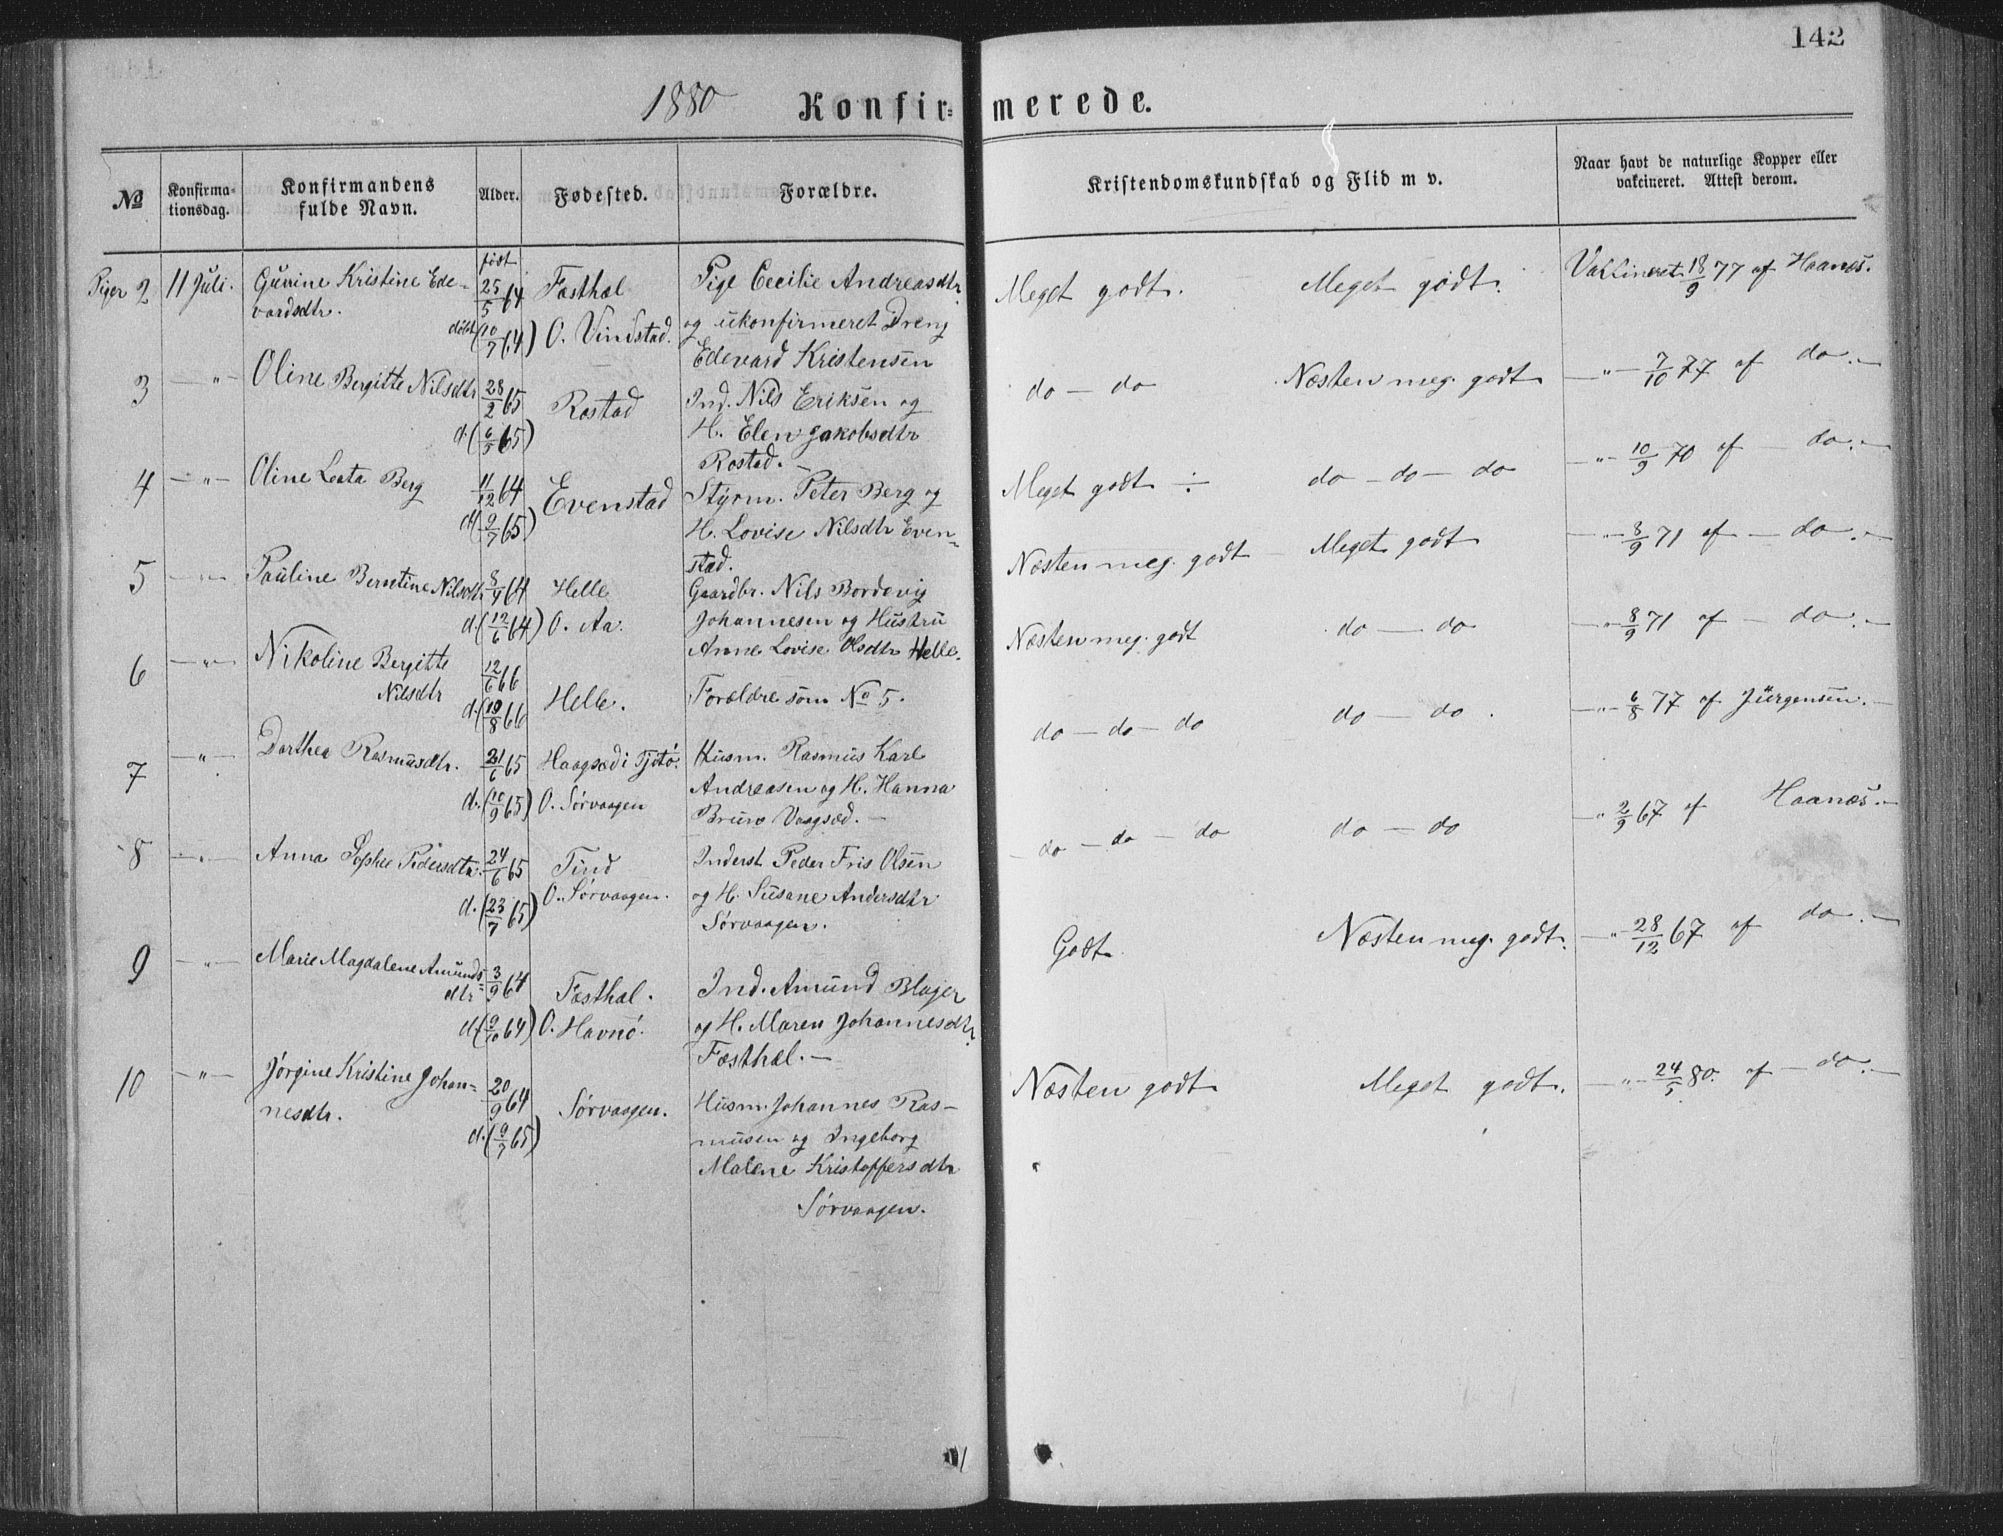 142
1880 Konfir- merede.
№ Konfirma-tionsdag. Konfirmandens fulde Navn. Alder. Fødested. Forældre. Kristendomskundskab og Flid m v. Naar havt de naturlige Kopper eller vakcineret. Attest derom.
født
Piger 2 11 Juli. Gurine Kristine Ede- 25/5 64 Fæsthæl Pige Cecilie Andreasdtr. Meget godt. Meget godt. Vakcineret 18/9 77 af Haanæs.
vardsdtr. døbt (10/7 64) O. Vindstad. og ukonfirmeret Dreng
Edevard Kristensen
3 — " — Oline Bergitte Nilsdtr 28/2 65 Rostad Ind. Nils Eriksen og do — do Næsten meg. godt — " — 7/10 77 af do. —
d. (6/5 65) H. Elen Jakobsdtr
Rostad. —
4 — " — Oline Leata Berg 11/12 64 Evenstad Styrm. Peter Berg og Meget godt ÷ do — do — do — " — 10/9 70 af — do. —
d. (9/7 65) H. Lovise Nilsdtr Even-
stad.
5 — " — Pauline Berntine Nilsdtr 8/4 64 Helle Gaardbr. Nils Bordevig Næsten meg. godt — Meget godt — " — 8/9 71 af — do. —
d. (12/6 64) O. Aa. Johannesen og Hustru
Anne Lovise Olsdtr Helle.
6 — " — Nikoline Bergitte 12/6 66 Helle. Forældre som № 5. Næsten meg. godt do — do — " — 8/9 71 af — do. —
Nilsdtr d. (19/8 66)
7 — " — Dorthea Rasmusdtr. 21/6 65 Haagsæd i Tjøtø. Husm. Rasmus Karl do — do — do do — do. — " — 6/8 77 af Jürgensen. —
d. (10/9 65) O. Sørvaagen Andreasen og H. Hanna
Bruun Vaagsæd. —
8 — " — Anna Sophie Pedersdtr. 24/6 65 Tind Inderst Peder Fris Olsen — do — do — do do — do — " 2/9 67 af Haanæs. —
d. (23/7 65) O. Sørvaagen. og H. Susane Andersdtr
Sørvaagen.
9 — " — Marie Magdalene Amunds- 3/9 64 Fæsthæl. Ind. Amund Blager Godt. Næsten meg. godt. — " — 28/12 67 af do. —
dtr d. (9/10 64) O. Havnø. og H. Maren Johannesdtr.
Fæsthæl. —
10 — " — Jørgine Kristine Johan- 20/9 64 Sørvaagen. Husm. Johannes Ras- Næsten godt Meget godt. — " — 24/5 80. af — do. —
nesdtr. d. (9/7 65) musen og Ingeborg
Malene Kristoffersdtr
Sørvaagen.